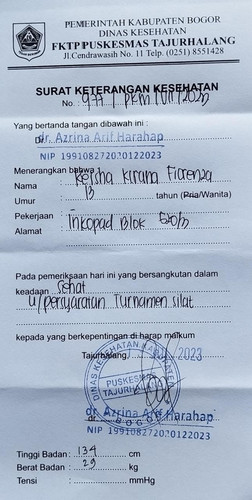 PEMERINTAH KABUPATEN BOGOR
DINAS KESEHATAN
FKTP PUSKESMAS TAJURHALANG
Jl.Cendrawasih No. 11 Telp. (0251) 8551428
SURAT KETERANGAN KESEHATAN
No. : 977 / pkm / VII / 2023
Yang bertanda tangan dibawah ini :
dr. Azrina Arif Harahap
NIP 199108272020122023
Menerangkan bahwa :
Nama : Keisha Kirana Fiorenza
Umur : 13 tahun (Pria/Wanita)
Pekerjaan :
Alamat : Inkopad Blok
Pada pemeriksaan hari ini yang bersangkutan dalam
keadaan Sehat
u/ persyaratan Turnamen silat
kepada yang berkepentingan di harap maklum
Tajurhalang, 2023
DINAS KESEHATAN KABUPATEN
PUSKESMAS
TAJURHALANG
BOGOR
dr. Azrina Arif Harahap
NIP 199108272020122023
Tinggi Badan : 134 cm
Berat Badan : 29 kg
Tensi : mmHg